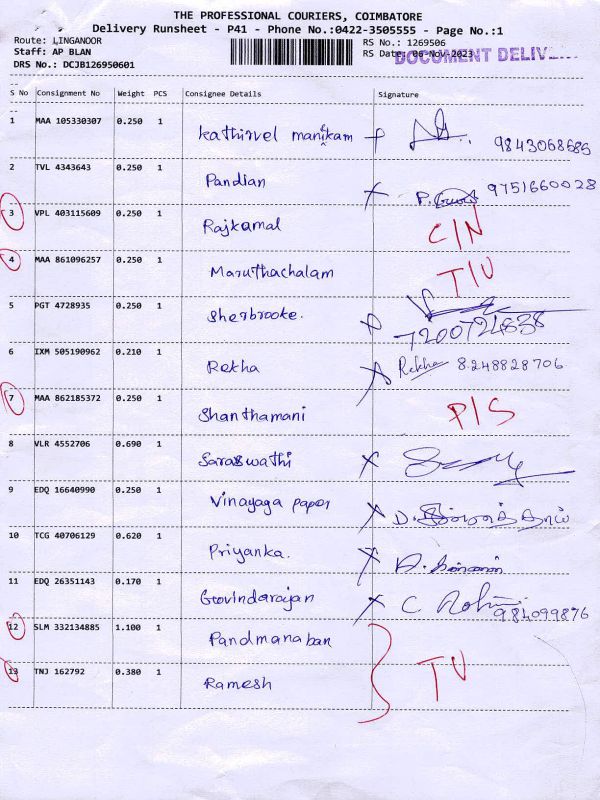 THE PROFESSIONAL COURIERS, COIMBATORE
Delivery Runsheet - P41 - Phone No.:0422-3505555 - Page No.:1
Route: LINGANOOR
RS No.: 1269506
Staff: AP BLAN
RS Date: 06-Nov-2023
DOCUMENT
DRS No.: DCJB126950601
S No Consignment No Weight PCS Consignee Details Signature
1 MAA 105330307 0.250 1 Kathirvel manikam 9843068686
2 TVL 4343643 0.250 1 Pandian 9751660028
3 VPL 403115609 0.250 1 Rajkamal C/N
4 MAA 861096257 0.250 1 Maruthachalam T/U
5 PGT 4728935 0.250 1 Sherbrooke.
6 IXM 505190962 0.210 1 Rekha Rekha 8248828706
7 MAA 862185372 0.250 1 Shanthamani P/S
8 VLR 4552706 0.690 1 Saraswathi
9 EDQ 16640990 0.250 1 Vinayaga paper D.
10 TCG 40706129 0.620 1 Priyanka.
11 EDQ 26351143 0.170 1 Govindarajan C 984099876
12 SLM 332134885 1.100 1 Pandmanaban
13 TNJ 162792 0.380 1 Ramesh TU